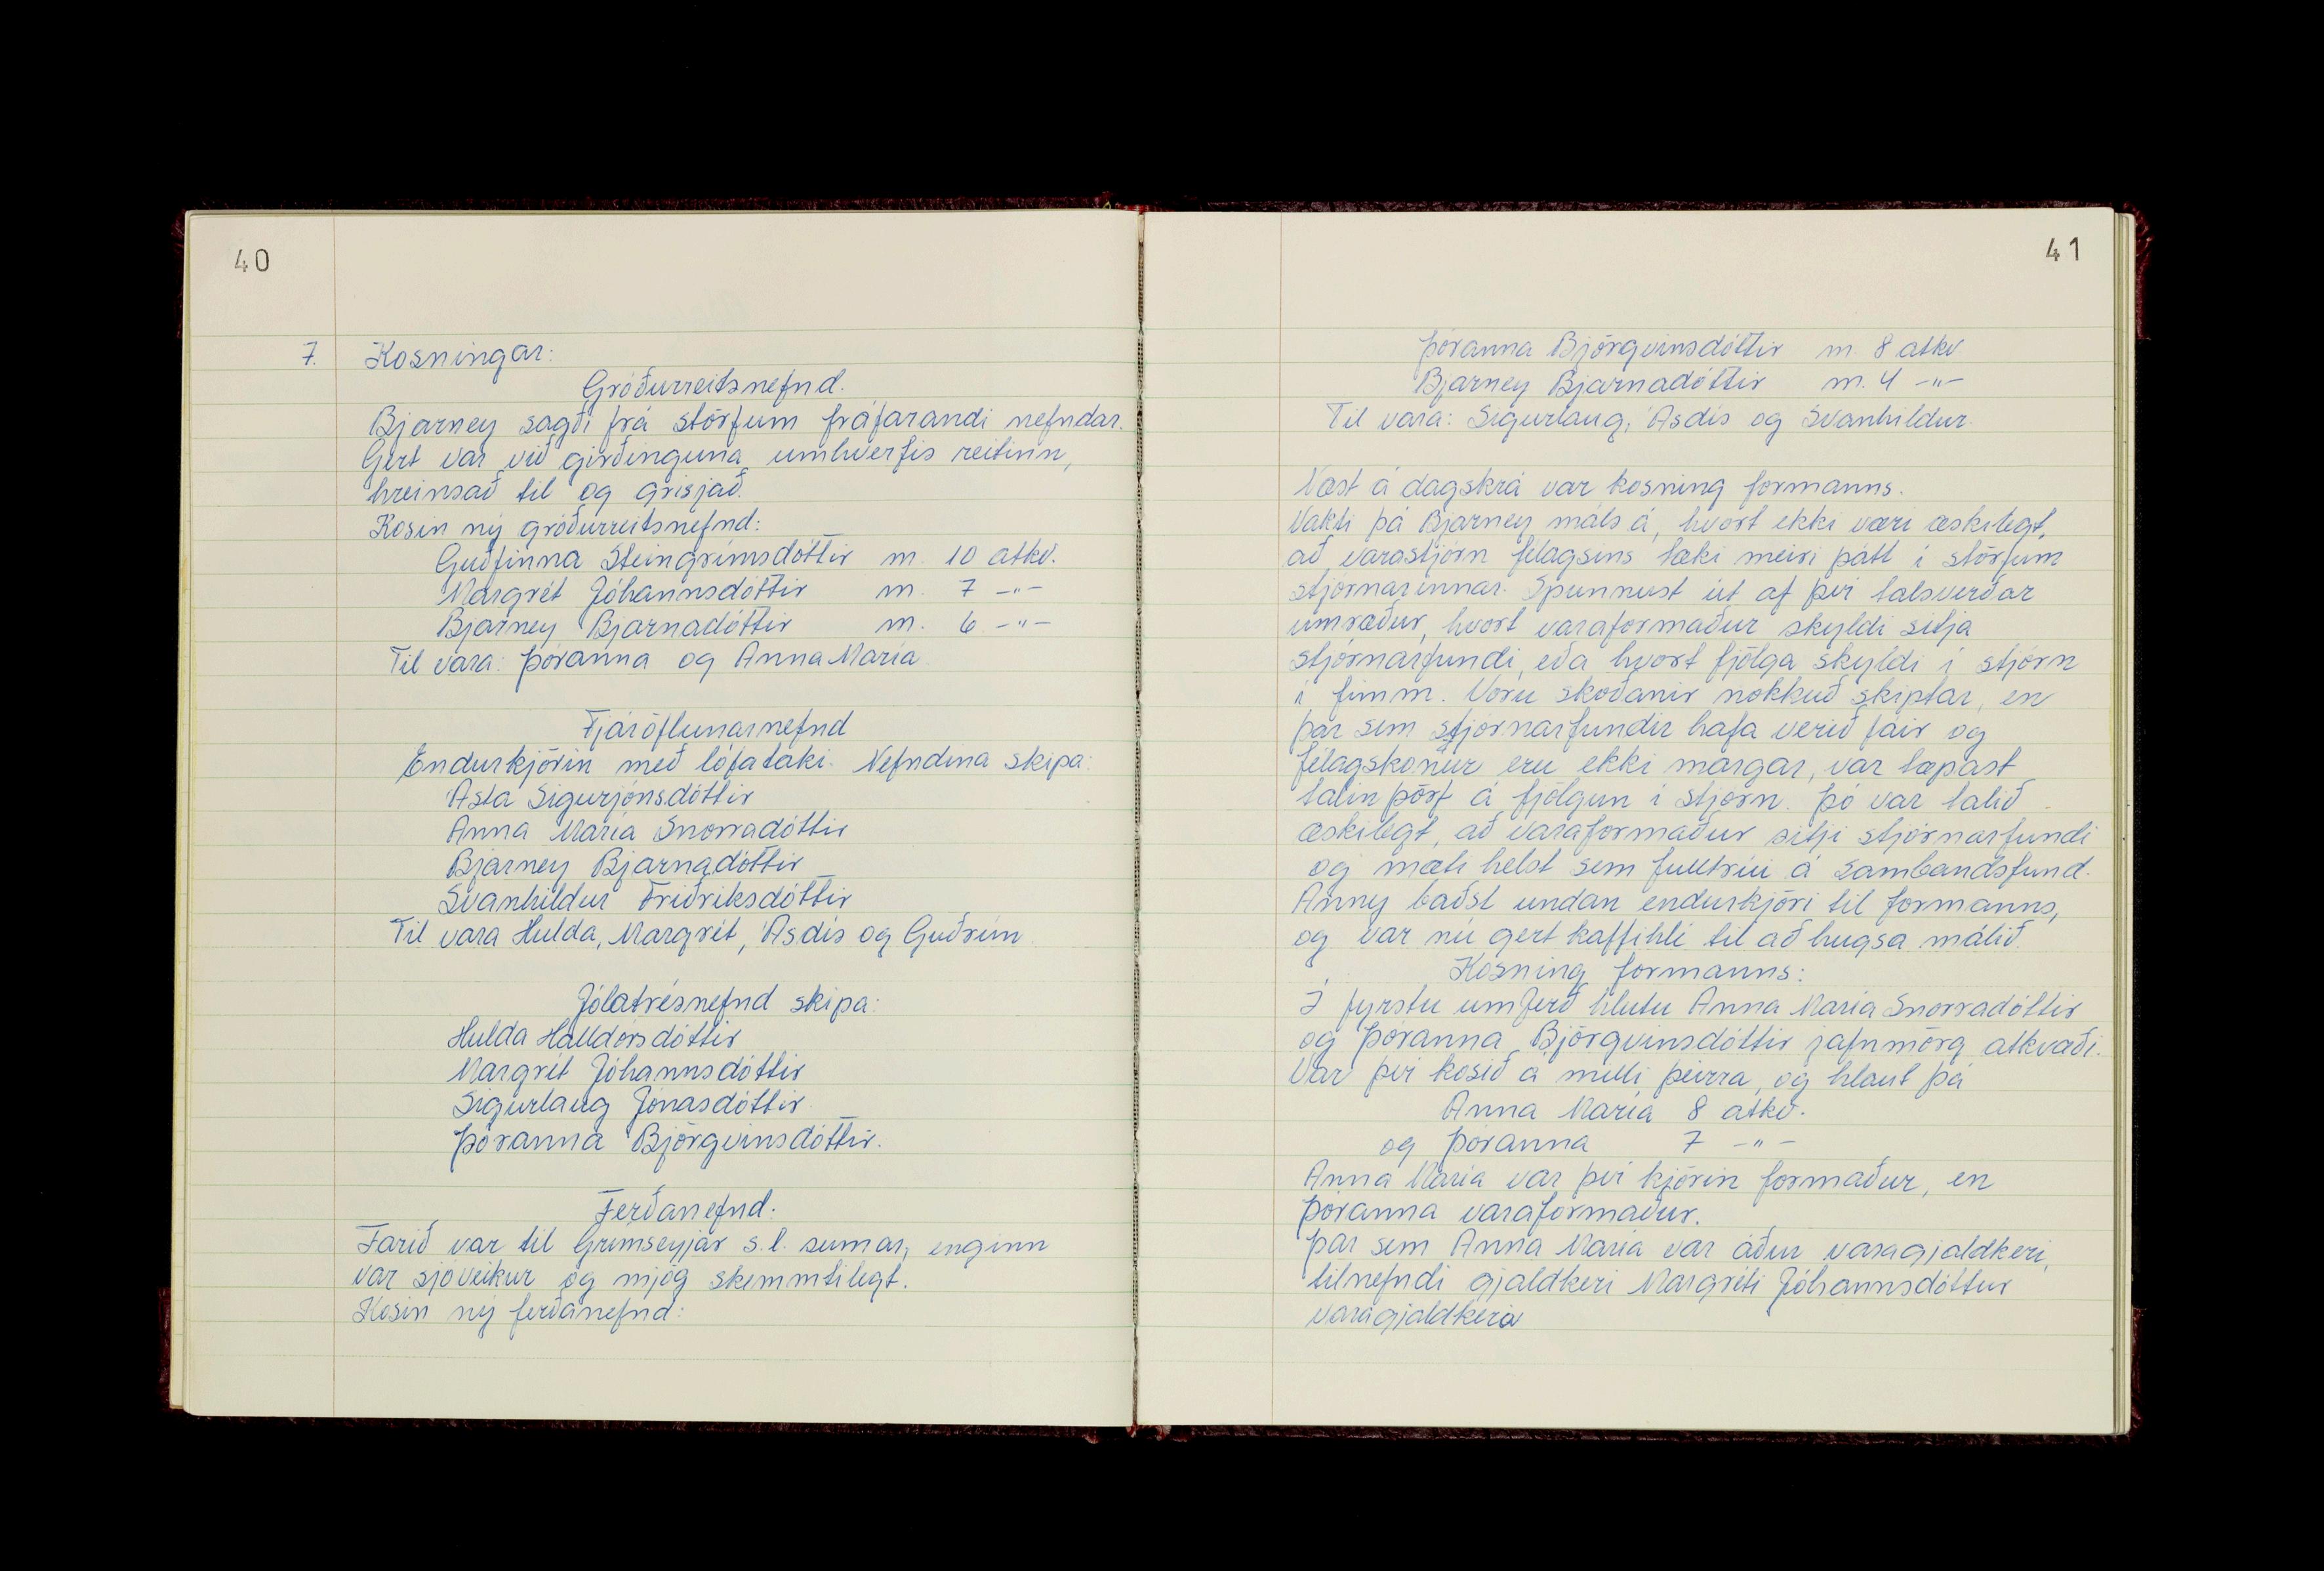 40
7. Kosningar:
Gróðurreitsnefnd.
Bjarney sagði frá störfum fráfarandi nefndar.
Gert var við girðinguna umhverfis reitinn,
hreinsað til og grisjað.
Kosin ný gróðurreitsnefnd:
Guðfinna Steingrímsdóttir m. 10 atkv.
Margrét Jóhannsdóttir m. 7 -"-
Bjarney Bjarnadóttir m. 6 -"-
Til vara: Þóranna og Anna María
Fjáröflunarnefnd
Endurkjörin með lófataki. Nefndina skipa:
Ásta Sigurjónsdóttir
Anna María Snorradóttir
Bjarney Bjarnadóttir
Svanhildur Friðriksdóttir
Til vara Hulda, Margrét, Ásdís og Guðrún
Jólatrésnefnd skipa:
Hulda Halldórsdóttir
Margrét Jóhannsdóttir
Sigurlaug Jónasdóttir
Þóranna Björgvinsdóttir.
Ferðanefnd.
Farið var til Grímseyjar s.l. sumar, enginn
var sjóveikur og mjög skemmtilegt.
Kosin ný ferðanefnd:
41
Þóranna Björgvinsdóttir m. 8 atkv
Bjarney Bjarnadóttir m. 4 -"-
Til vara: Sigurlaug, Ásdís og Svanhildur.
Næst á dagskrá var kosning formanns.
Vakti þá Bjarney máls á, hvort ekki væri æskilegt,
að varastjórn félagsins tæki meiri þátt í störfum
stjórnarinnar. Spunnust út af því talsverðar
umræður, hvort varaformaður skyldi sitja
stjórnarfundi, eða hvort fjölga skyldi í stjórn
í fimm. Voru skoðanir nokkuð skiptar, en
þar sem stjórnarfundir hafa verið fáir og
félagskonur eru ekki margar, var tæpast
talin þörf á fjölgun í stjórn. Þó var talið
æskilegt, að varaformaður sitji stjórnarfundi
og mæti helst sem fulltrúi á Sambandsfund.
Anny baðst undan endurkjöri til formanns,
og var nú gert kaffihlé til að hugsa málið.
Kosning formanns:
Í fyrstu umferð hlutu Anna María Snorradóttir
og Þóranna Björgvinsdóttir jafnmörg atkvæði.
Var því kosið á milli þeirra, og hlaut þá
Anna María 8 atkv.
og Þóranna 7 -"-
Anna María var því kjörin formaður, en
Þóranna varaformaður.
Þar sem Anna María var áður varagjaldkeri,
tilnefndi gjaldkeri Margréti Jóhannsdóttur
varagjaldkera